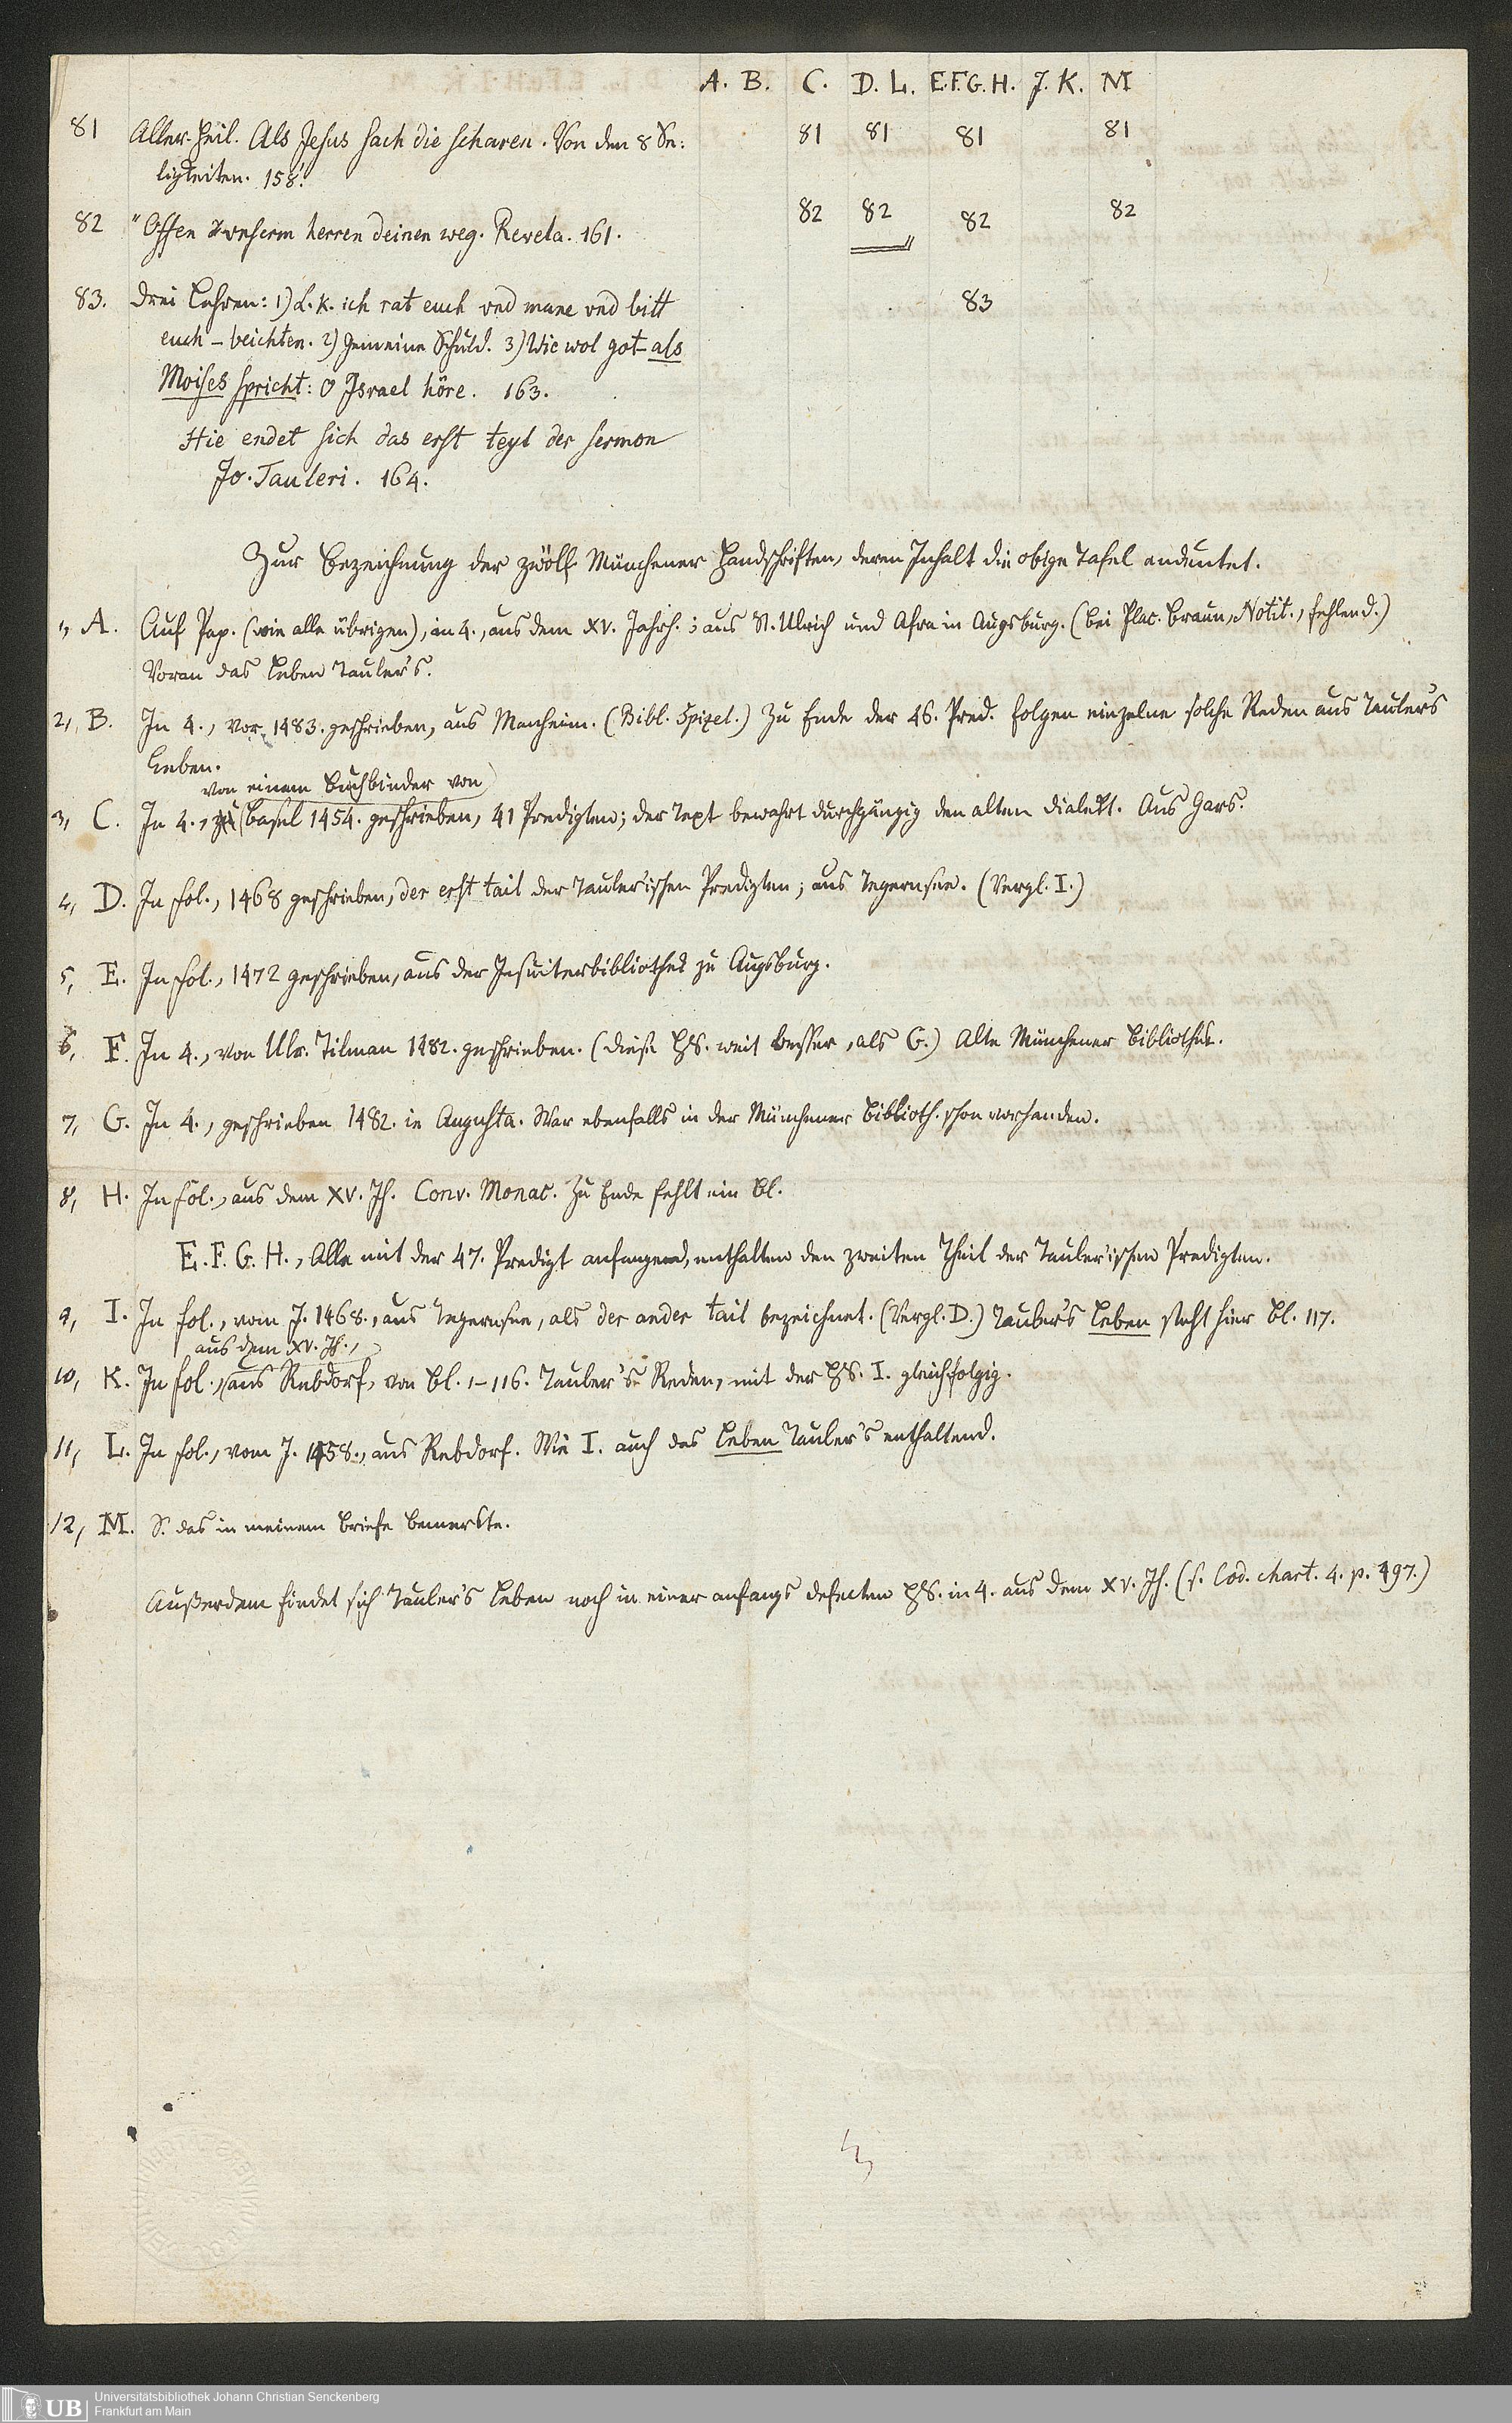 A. B. C. D. L. E.F.G.H. J. K. M
81 Aller-Heil. Als Jesus sach die scharen. Von den 8 Se: 81 81 81 81
ligkeiten. 158.
82 " Offen vnserm herren deinen weg. Revela. 161. 82 82 82 82
83. Drei Lehren: 1) L. K. ich rat euch vnd mane vnd bitt 83
euch – beichten. 2) Gemeine Schuld. 3) Wie wol got – als
Moises spricht: O Israel höre. 163.
Hie endet sich das erst teyl der sermon
Jo. Tauleri. 164.
Zur Bezeichnung der zwölf Münchener Handschriften, deren Inhalt die obige Tafel andeutet.
1, A. Auf Pap. (wie alle übrigen), in 4., aus dem XV. Jahrh.; aus St. Ulrich und Afra in Augsburg. (bei Plac. Braun, Notit., fehlend.)
Voran das Leben Taulers.
2, B. In 4., vor 1483. geschrieben, aus Manheim. (Bibl. Spizel.) Zu Ende der 46. Pred. folgen einzelne solche Reden aus Taulers
Leben.
von einem Buchbinder von
3, C. In 4., Basel 1454. geschrieben, 41 Predigten; der Text bewahrt durchgängig den alten Dialekt. Aus Gars.
4, D. In fol., 1468 geschrieben, der erst tail der Tauler'ischen Predigten; aus Tegernsee. (Vergl. I.)
5, E. In fol., 1472 geschrieben, aus der Jesuiterbibliothek zu Augsburg.
6, F. In 4., von Ulr. Tilman 1482. geschrieben. (diese HS. weit besser, als G.) Alte Münchener Bibliothek.
7, G. In 4., geschrieben 1482. in Augusta. War ebenfalls in der Münchener Biblioth. schon vorhanden.
8, H. In fol., aus dem XV. Jh. Conv. Monac. Zu Ende fehlt ein Bl.
E. F. G. H., Alle mit der 47. Predigt anfangend, enthalten den zweiten Theil der Tauler'ischen Predigten.
9, I. In fol., vom J. 1468., aus Tegernsee, als der ander tail bezeichnet. (Vergl. D.) Tauler's Leben steht hier Bl. 117.
aus dem XV. Jh.,
10, K. In fol., aus Rebdorf, von Bl. 1–116. Tauler's Reden, mit der HS. I. gleichfolgig.
11, L. In fol., vom J. 1458., aus Rebdorf. Wie I. auch das Leben Tauler's enthaltend.
12, M. S. das in meinem Briefe bemerkte.
Außerdem findet sich Tauler's Leben noch in einer anfangs defecten HS. in 4. aus dem XV. Jh. (s. Cod. chart. 4. p. 497.)
UB Universitätsbibliothek Johann Christian Senckenberg
Frankfurt am Main